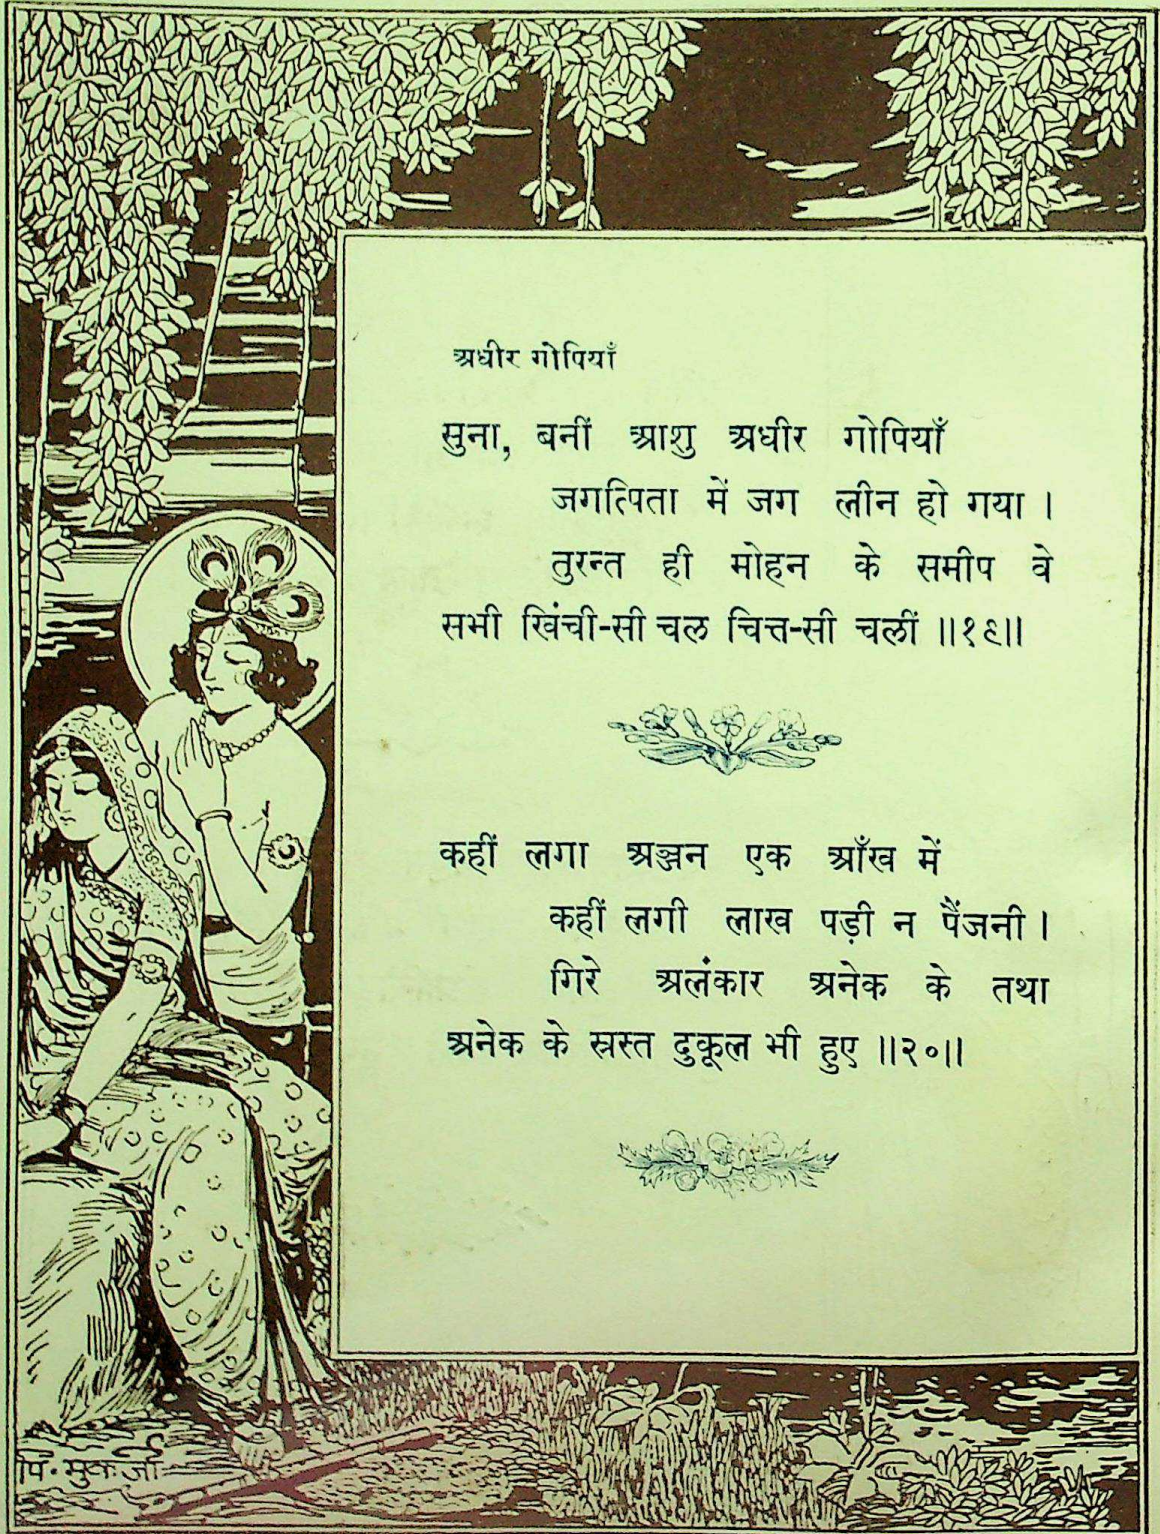 अधीर गोपियाँ
सुना, बनीं आशु अधीर गोपियाँ
जगत्पिता में जग लीन हो गया ।
तुरन्त ही मोहन के समीप वे
सभी खिंची-सी चल चित्त-सी चलीं ॥१९॥
कहीं लगा अञ्जन एक आँख में
कहीं लगी लाख पड़ी न पैंजनी ।
गिरे अलंकार अनेक के तथा
अनेक के स्रस्त दुकूल भी हुए ॥२०॥
पि. मुकर्जी